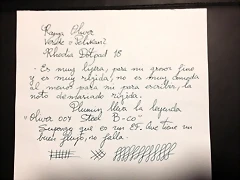 Ranga Oliver
Verde o Pelikan
Rhodia Dotpad 16
- Es muy ligera, para mi grosor fino
y es muy rígida, no es muy cómoda
al menos para mi para escribir, la
noto demasiado rígida.
Plumín lleva la leyenda
"Oliver 004 Steel B-CO"
Supongo que es un EF. Que tiene un
buen flujo, no falla.